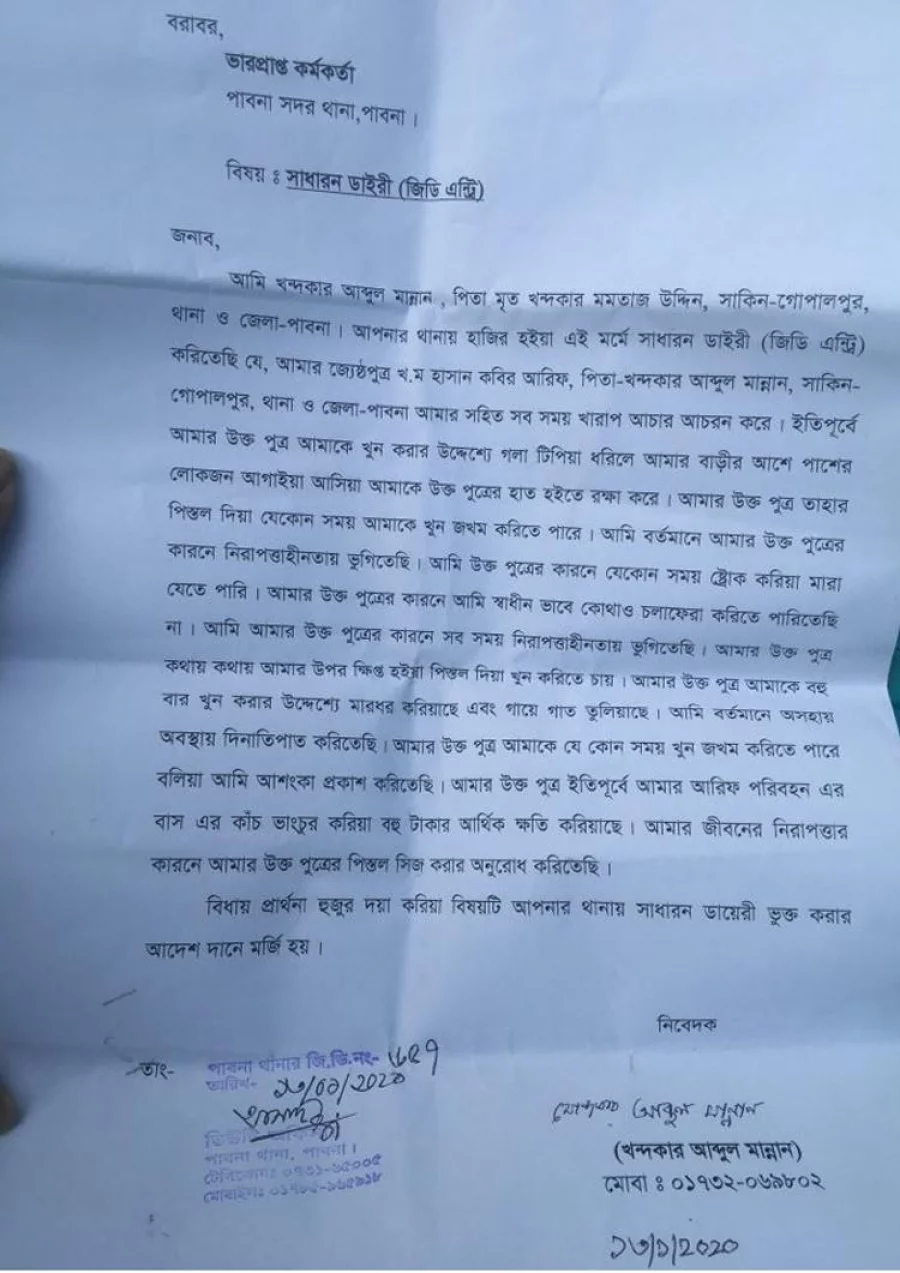 বরাবর,
ভারপ্রাপ্ত কর্মকর্তা
পাবনা সদর থানা,পাবনা ।
বিষয় ঃ সাধারন ডাইরী (জিডি এন্ট্রি)
জনাব,
আমি খন্দকার আব্দুল মান্নান , পিতা মৃত খন্দকার মমতাজ উদ্দিন, সাকিন-গোপালপুর,
থানা ও জেলা-পাবনা । আপনার থানায় হাজির হইয়া এই মর্মে সাধারন ডাইরী (জিডি এন্ট্রি)
করিতেছি যে, আমার জ্যেষ্ঠপুত্র খ.ম হাসান কবির আরিফ, পিতা-খন্দকার আব্দুল মান্নান, সাকিন-
গোপালপুর, থানা ও জেলা-পাবনা আমার সহিত সব সময় খারাপ আচার আচরন করে । ইতিপূর্বে
আমার উক্ত পুত্র আমাকে খুন করার উদ্দেশ্যে গলা টিপিয়া ধরিলে আমার বাড়ীর আশে পাশের
লোকজন আগাইয়া আসিয়া আমাকে উক্ত পুত্রের হাত হইতে রক্ষা করে । আমার উক্ত পুত্র তাহার
পিস্তল দিয়া যেকোন সময় আমাকে খুন জখম করিতে পারে । আমি বর্তমানে আমার উক্ত পুত্রের
কারনে নিরাপত্তাহীনতায় ভুগিতেছি । আমি উক্ত পুত্রের কারনে যেকোন সময় ষ্ট্রোক করিয়া মারা
যেতে পারি । আমার উক্ত পুত্রের কারনে আমি স্বাধীন ভাবে কোথাও চলাফেরা করিতে পারিতেছি
না । আমি আমার উক্ত পুত্রের কারনে সব সময় নিরাপত্তাহীনতায় ভুগিতেছি । আমার উক্ত পুত্র
কথায় কথায় আমার উপর ক্ষিপ্ত হইয়া পিস্তল দিয়া খুন করিতে চায় । আমার উক্ত পুত্র আমাকে বহু
বার খুন করার উদ্দেশ্যে মারধর করিয়াছে এবং গায়ে গাত তুলিয়াছে । আমি বর্তমানে অসহায়
অবস্থায় দিনাতিপাত করিতেছি । আমার উক্ত পুত্র আমাকে যে কোন সময় খুন জখম করিতে পারে
বলিয়া আমি আশংকা প্রকাশ করিতেছি । আমার উক্ত পুত্র ইতিপূর্বে আমার আরিফ পরিবহন এর
বাস এর কাঁচ ভাংচুর করিয়া বহু টাকার আর্থিক ক্ষতি করিয়াছে । আমার জীবনের নিরাপত্তার
কারনে আমার উক্ত পুত্রের পিস্তল সিজ করার অনুরোধ করিতেছি ।
বিধায় প্রার্থনা হুজুর দয়া করিয়া বিষয়টি আপনার থানায় সাধারন ডায়েরী ভুক্ত করার
আদেশ দানে মর্জি হয় ।
নিবেদক
তাং- পাবনা থানার জি.ডি.নং-
তারিখ-
পাবনা থানা, পাবনা ।
আব্দুল মান্নান
(খন্দকার আব্দুল মান্নান)
মোবা ঃ ০১৭৩২-০৬৯৮০২
১৩/১/2020